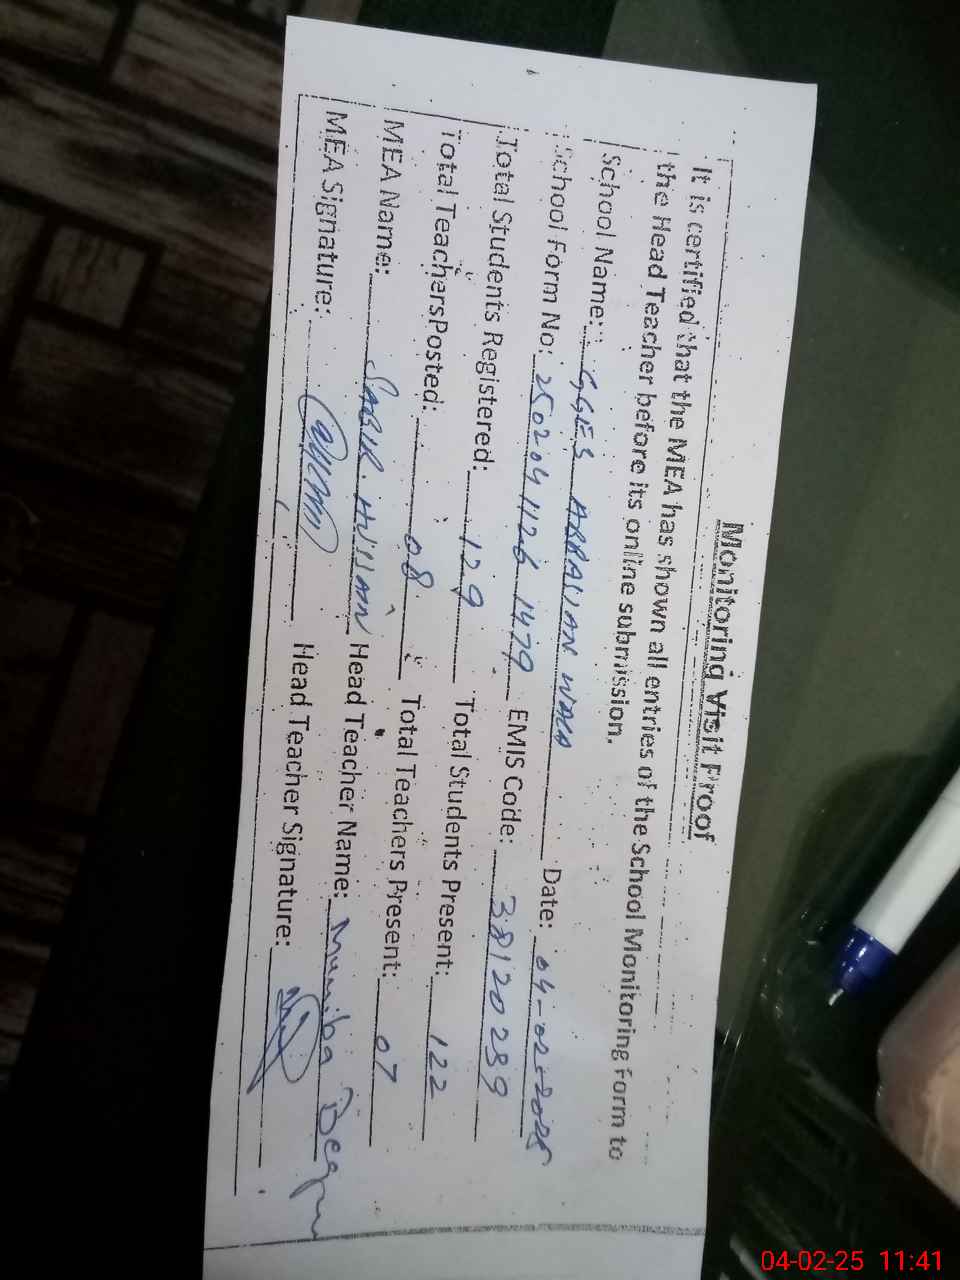 Monitoring Visit Proof
It is certified that the MEA has shown all entries of the School Monitoring Form to
the Head Teacher before its online submission.
School Name: GGES ABBASIAN WALA Date: 04-02-2025
School Form No: 250204 1126 1479 EMIS Code: 38120239
Total Students Registered: 129 Total Students Present: 122
Total Teachers Posted: 08 Total Teachers Present: 07
MEA Name: SABIR HUSSAIN Head Teacher Name: Muniba Begum
MEA Signature: Head Teacher Signature:
04-02-25 11:41